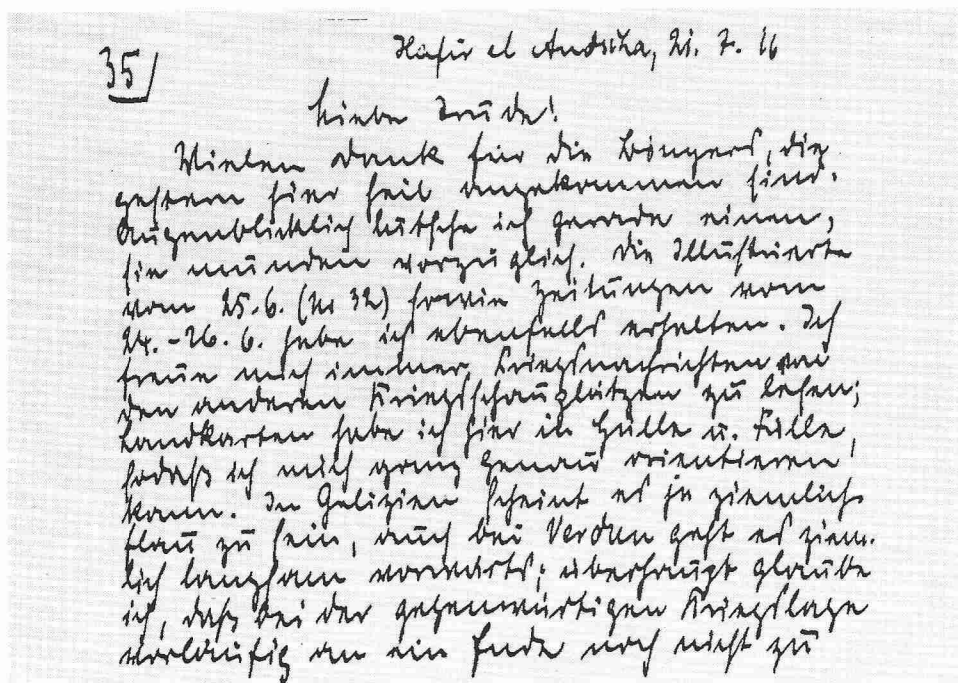 35/
Hafir el Andscha, 21. 7. 16
Liebe Trude!
Vielen Dank für die Bongers, die
gestern hier heil angekommen sind.
Augenblicklich lutsche ich gerade einen,
sie munden vorzüglich. Die Illustrierte
vom 25. 6. (No 32) sowie Zeitungen vom
24. - 26. 6. habe ich ebenfalls erhalten. Ich
freue mich immer, Kriegsnachrichten von
den anderen Kriegsschauplätzen zu lesen;
Landkarten habe ich hier in Hülle u. Fülle,
sodaß ich mich ganz genau orientieren
kann. In Galizien scheint es ja ziemlich
flau zu sein, auch bei Verdun geht es ziem-
lich langsam vorwärts; überhaupt glaube
ich, daß bei der gegenwärtigen Kriegslage
vorläufig an ein Ende noch nicht zu